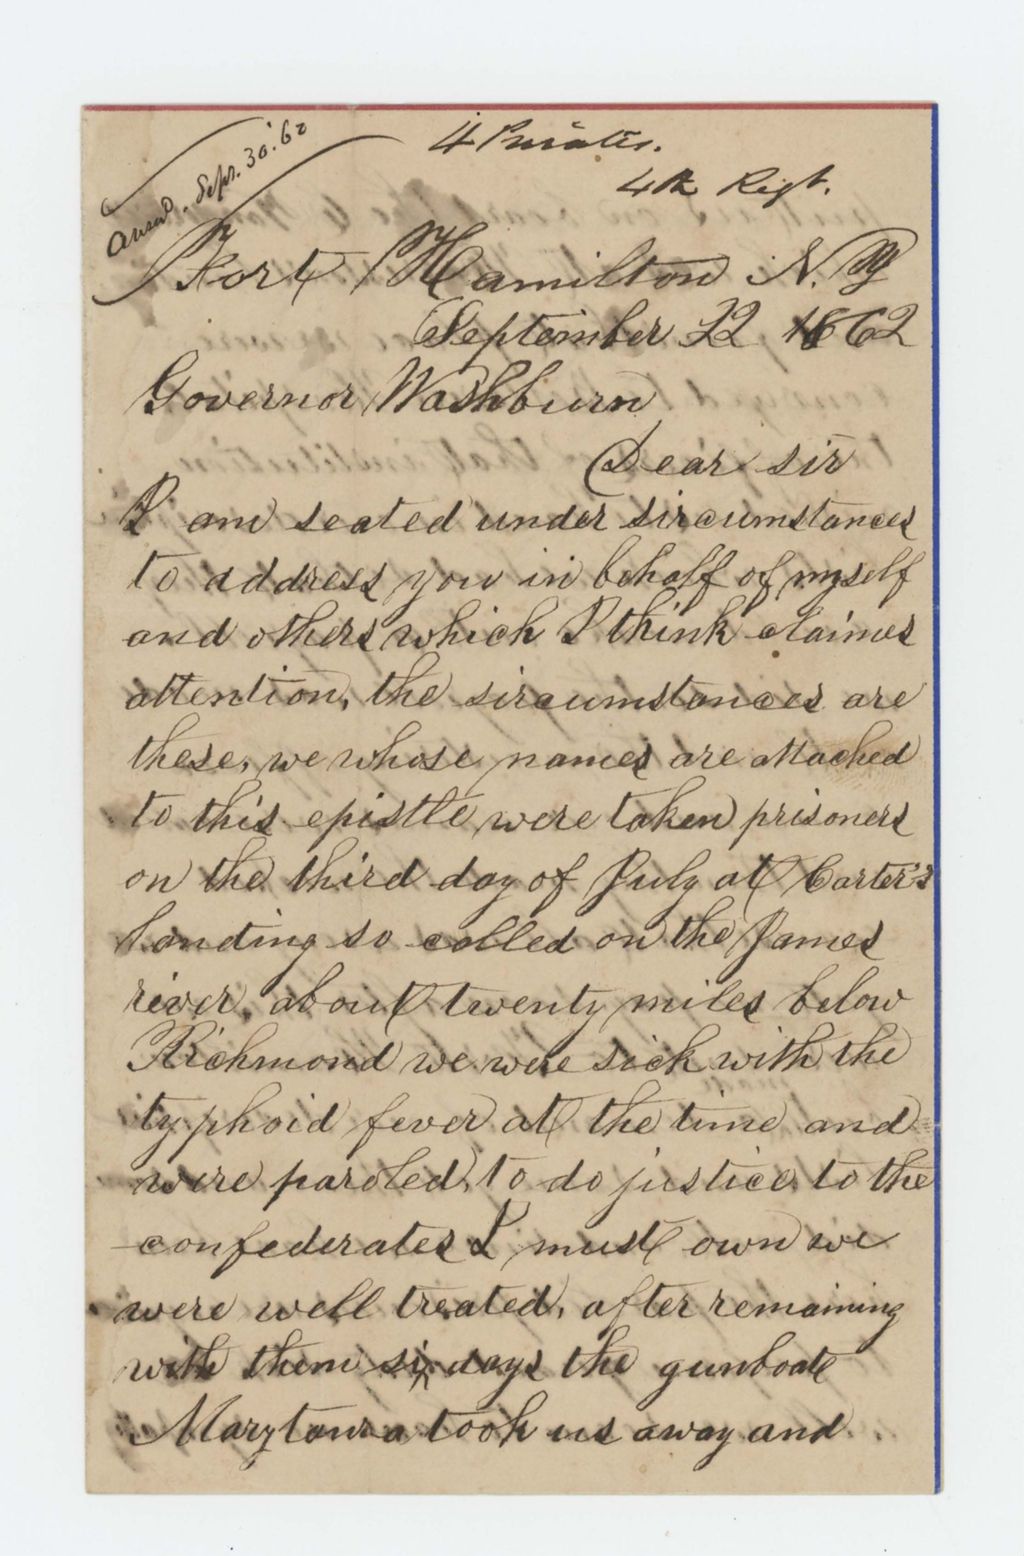 Answd. Sepr. 30. 62
4 Privates.
4th Regt.
Fort Hamilton N. Y
September 22 1862
Governor Washburn
Dear sir
I am seated under sircumstances
to address you in behalf of myself
and others which I think claimes
attention, the sircumstances are
these, we whose names are attached
to this epistle were taken prisoners
on the third day of July at Carter's
Landing so called on the James
river, about twenty miles below
Richmond we were sick with the
typhoid fever at the time and
were paroled, to do justice to the
confederates I must own we
were well treated, after remaining
with them six days the gunboate
Marytanza took us away and